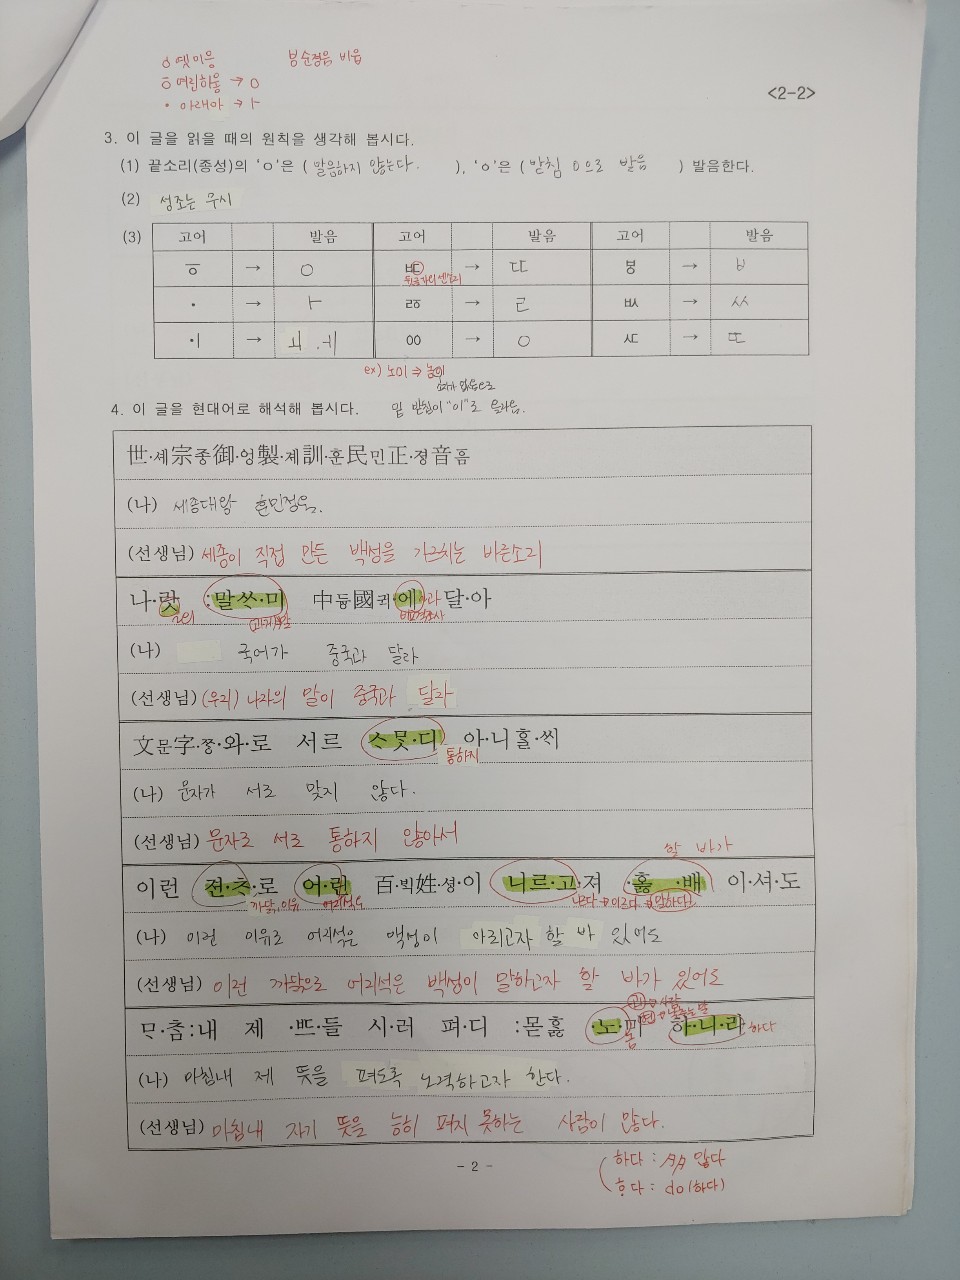 ㆁ 옛이응 ㅸ순경음 비읍
ㆆ 여린히읗 → ㅇ
ㆍ 아래아 → ㅏ
<2-2>
3. 이 글을 읽을 때의 원칙을 생각해 봅시다.
(1) 끝소리(종성)의 'ㅇ'은 ( 발음하지 않는다. ), 'ㆁ'은 ( 받침 ㅇ으로 발음 ) 발음한다.
(2) 성조는 무시
(3) 고어 발음 고어 발음 고어 발음
ㆆ → ㅇ ㅳ → ㄸ ㅸ → ㅂ
뒷글자의 센소리
ㆍ → ㅏ ㅀ → ㄹ ㅄ → ㅆ
ㆎ → ㅐ, ㅔ ㆀ → ㅇ ㅼ → ㄸ
ex) 노미 ⇒ 놈이
4. 이 글을 현대어로 해석해 봅시다. 밑 받침이 "이"로 올라옴.
世·솅宗종御·엉製·졩訓·훈民민正·졍音흠
(나) 세종대왕 훈민정음.
(선생님) 세종이 직접 만든 백성을 가르치는 바른소리
나·랏 :말ᄊᆞ·미 中듕國귁·에 달·아
나의 비교격조사
(나) 국어가 중국과 달라
(선생님) (우리) 나라의 말이 중국과 달라
文문字·ᄍᆞᆼ·와·로 서르 ᄉᆞᄆᆞᆺ·디 아·니ᄒᆞᆯ·ᄊᆡ
통하지
(나) 문자가 서로 맞지 않다.
(선생님) 문자로 서로 통하지 않아서
할 바가
이런 젼·ᄎᆞ·로 어·린 百·ᄇᆡᆨ姓·셩·이 니르·고·져 ·홇 ·배 이·셔·도
까닭, 이유 어리석은 니르다 → 이르다 → (말하다)
(나) 이런 이유로 어리석은 백성이 아리고자 할 바 있어도
(선생님) 이런 까닭으로 어리석은 백성이 말하고자 할 바가 있어도
ᄆᆞ·ᄎᆞᆷ:내 제 ·ᄠᅳ·들 시·러 펴·디 :몯ᄒᆞᇙ ·노·미 하·니·라 하다
놈
(나) 마침내 제 뜻을 펴도록 노력하고자 한다.
(선생님) 마침내 자기 뜻을 능히 펴지 못하는 사람이 많다.
- 2 -
하다 : 多 많다
ᄒᆞ다 : do(하다)